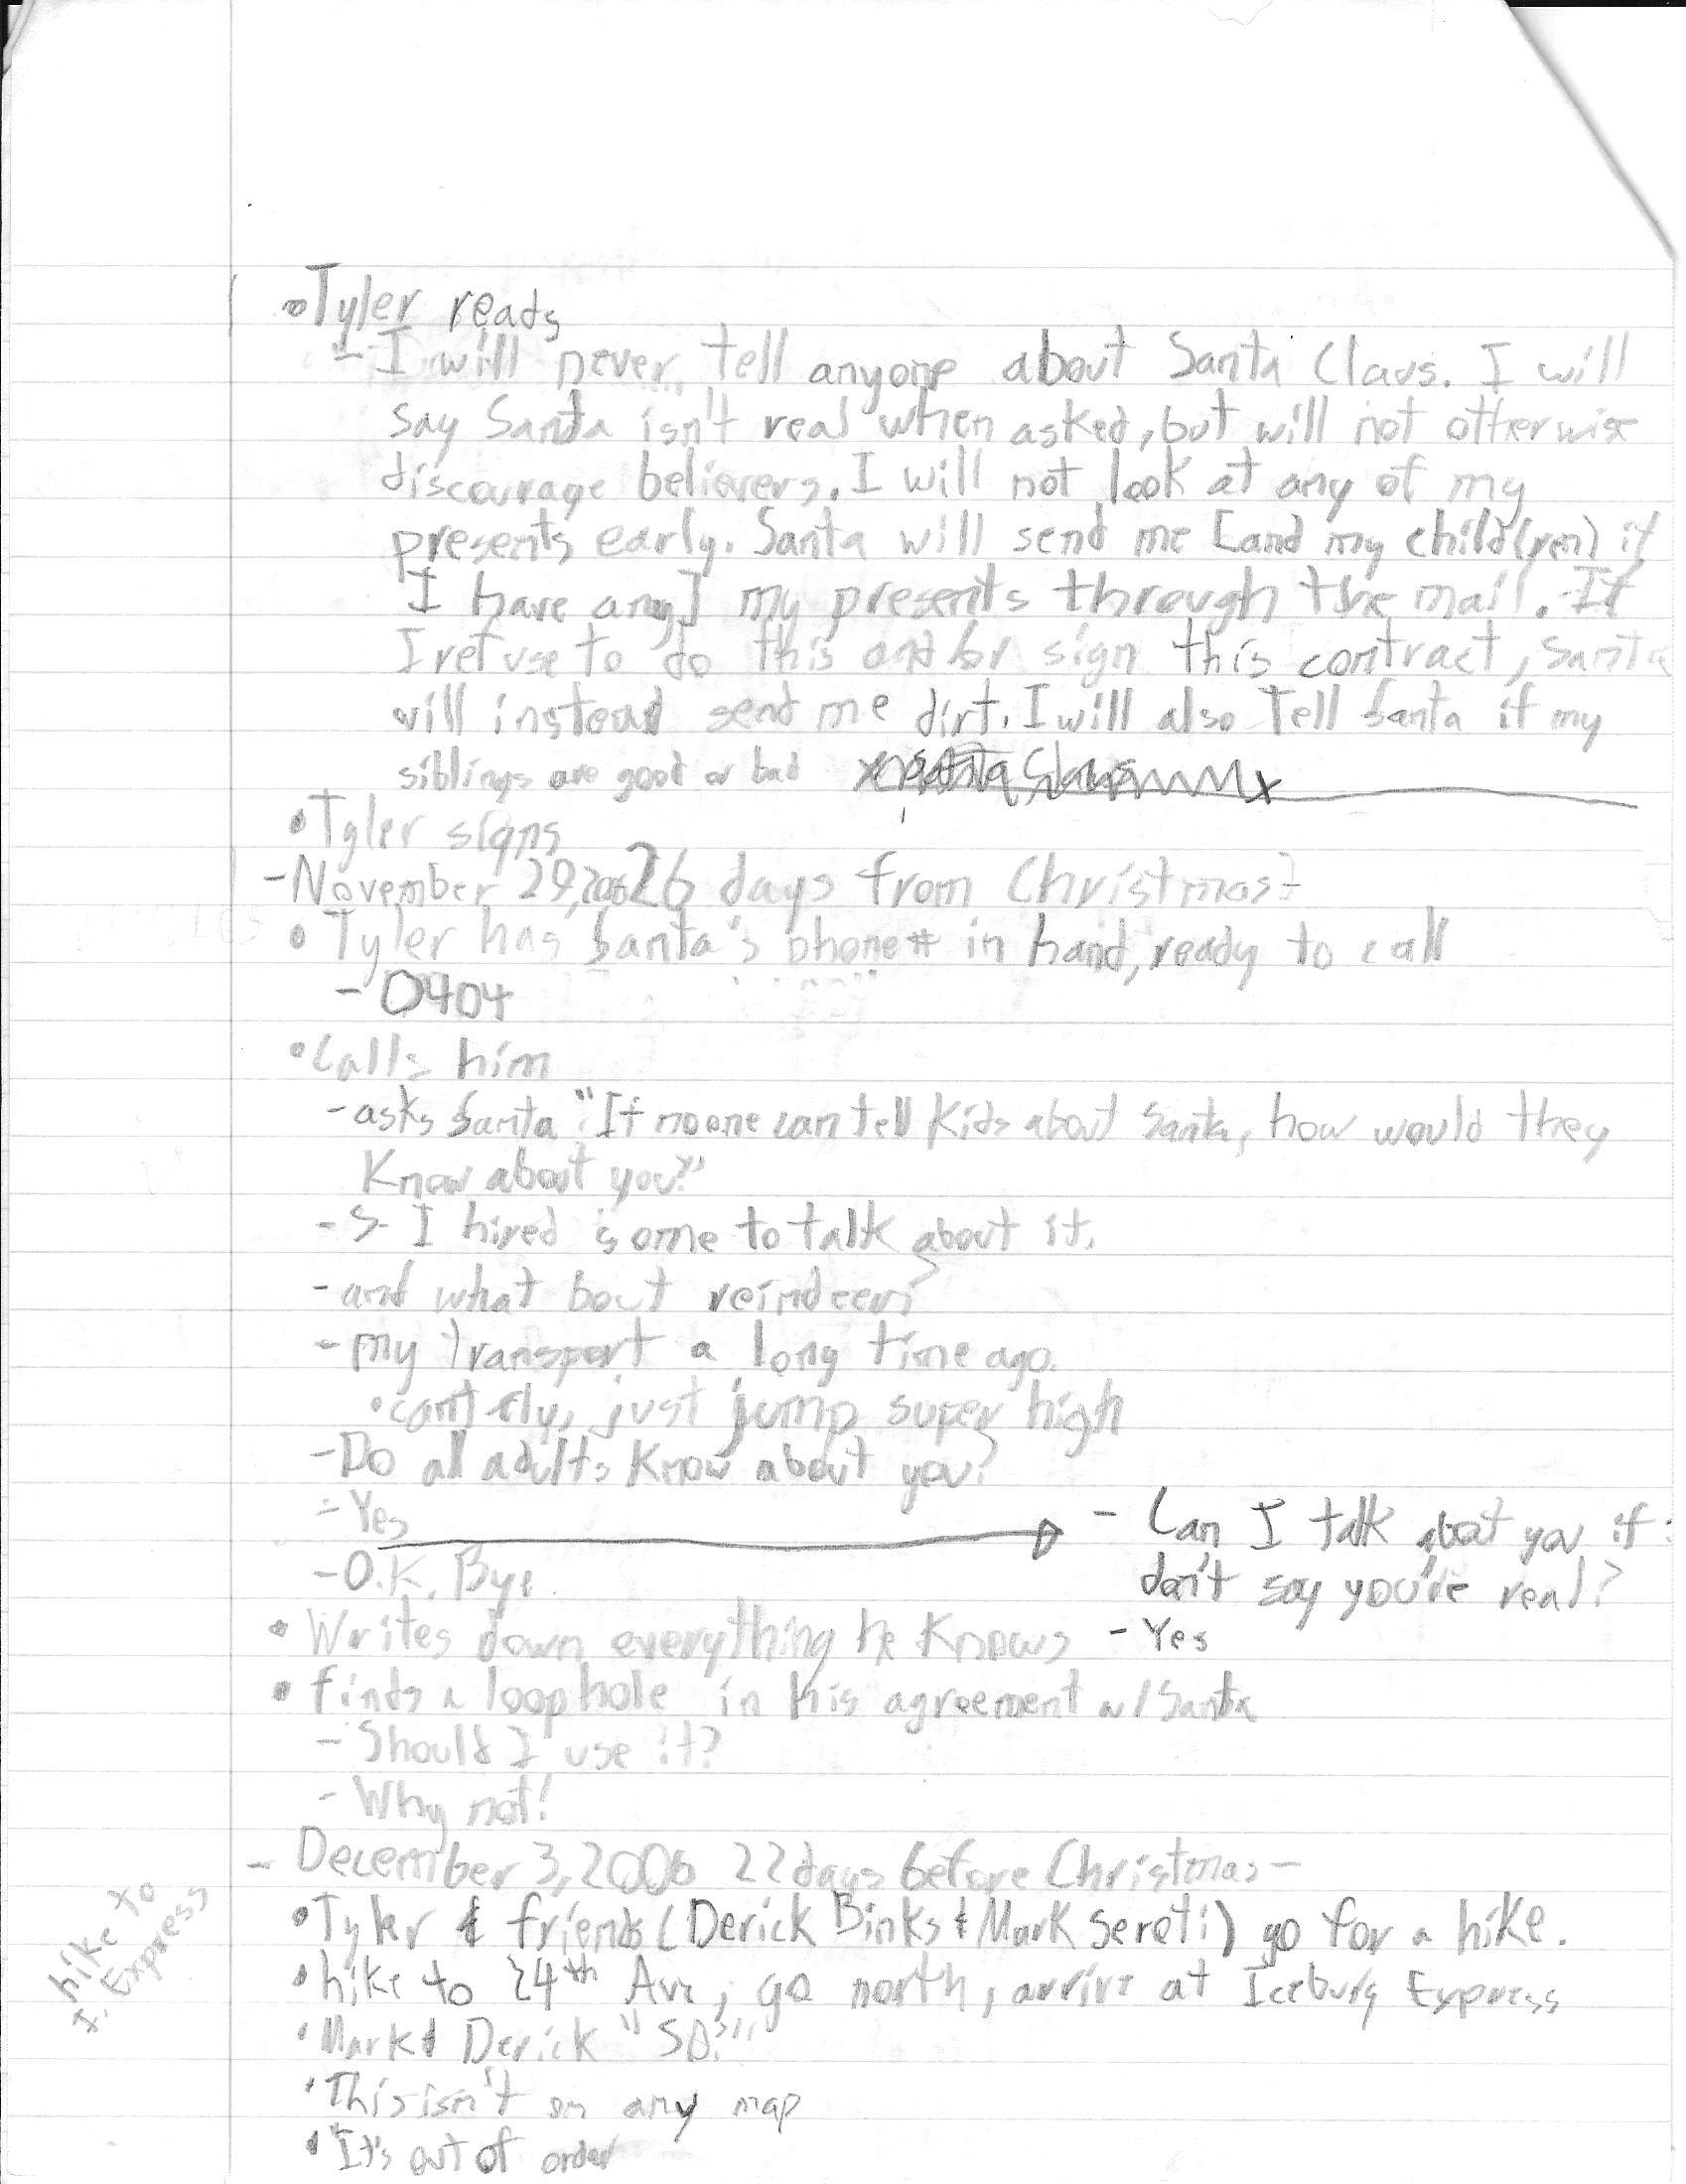 •Tyler reads
- I will never tell anyone about Santa Claus. I will
say Santa isn't real when asked, but will not otherwise
discourage believers. I will not look at any of my
presents early. Santa will send me [and my child(ren) if
I have any] my presents through the mail. If
I refuse to do this and/or sign this contract, Santa
will instead send me dirt. I will also tell Santa if my
siblings are good or bad
•Tyler signs
-November 29, 2006 26 days from Christmas-
•Tyler has Santa's phone# in hand, ready to call
-0404
•Calls him
-asks Santa "If no one can tell kids about Santa, how would they
know about you?"
-S- I hired some to talk about it.
-and what bout reindeer?
-my transport a long time ago.
•can't fly, just jump super high
-Do all adults know about you?
-Yes
- Can I talk about you if
don't say you're real?
-Yes
-O.K. Bye.
•Writes down everything he knows
•finds a loophole in his agreement w/ Santa
-Should I use it?
-Why not!
- December 3, 2006 22 days before Christmas-
•Tyler & friends (Derick Binks & Mark Sereti) go for a hike.
•hike to 24th Ave, go north, arrive at Iceburg Express
hike to
I. Express
•Mark & Derick "SO?!"
•This isn't on any map
•"It's out of order